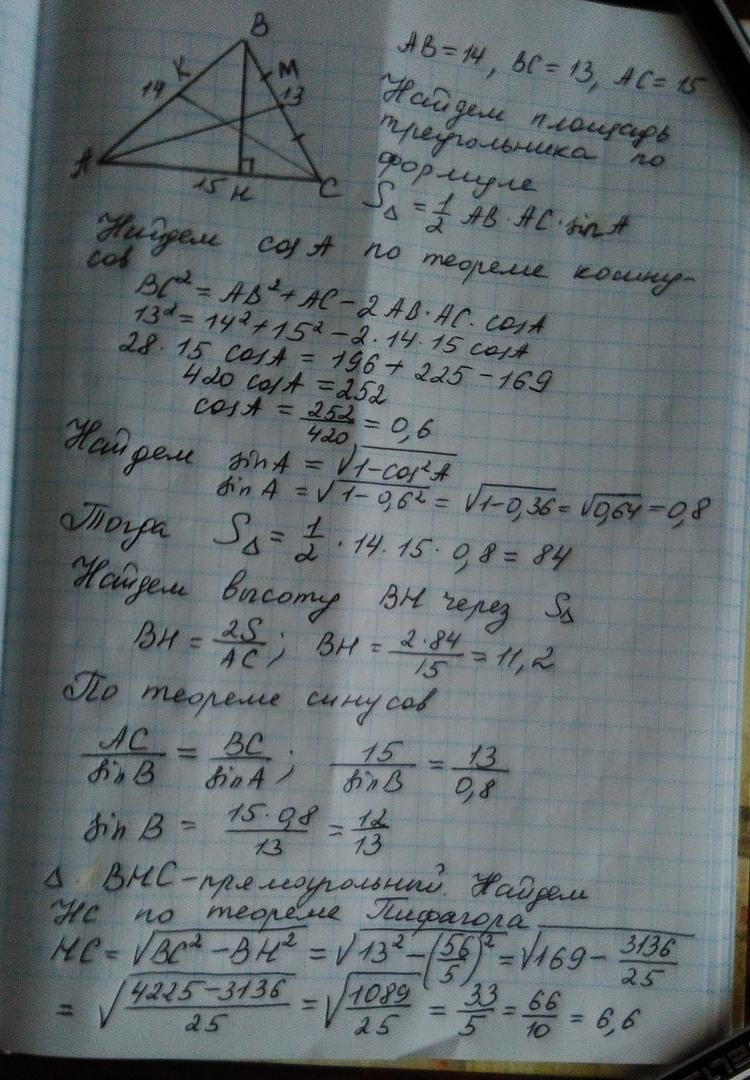 B
K
M
14
13
A
15
H
C
AB = 14, BC = 13, AC = 15
Найдем площадь
треугольника по
формуле
S△ = 1/2 AB · AC · sin A
Найдем cos A по теореме косину-
сов
BC² = AB² + AC - 2 AB · AC · cos A
13² = 14² + 15² - 2 · 14 · 15 cos A
28 · 15 cos A = 196 + 225 - 169
420 cos A = 252
cos A = 252/420 = 0,6
Найдем sin A = √(1 - cos² A)
sin A = √(1 - 0,6²) = √(1 - 0,36) = √0,64 = 0,8
Тогда S△ = 1/2 · 14 · 15 · 0,8 = 84
Найдем высоту BH через S△
BH = 2S/AC ; BH = 2·84/15 = 11,2
По теореме синусов
AC/sin B = BC/sin A ; 15/sin B = 13/0,8
sin B = 15 · 0,8/13 = 12/13
△ BHC - прямоугольный. Найдем
HC по теореме Пифагора
HC = √(BC² - BH²) = √(13² - (56/5)²) = √(169 - 3136/25)
= √((4225 - 3136)/25) = √(1089/25) = 33/5 = 66/10 = 6,6